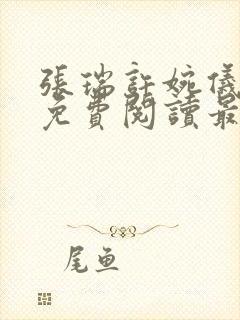 張瑞許婉儀
免費閱讀最
尾魚